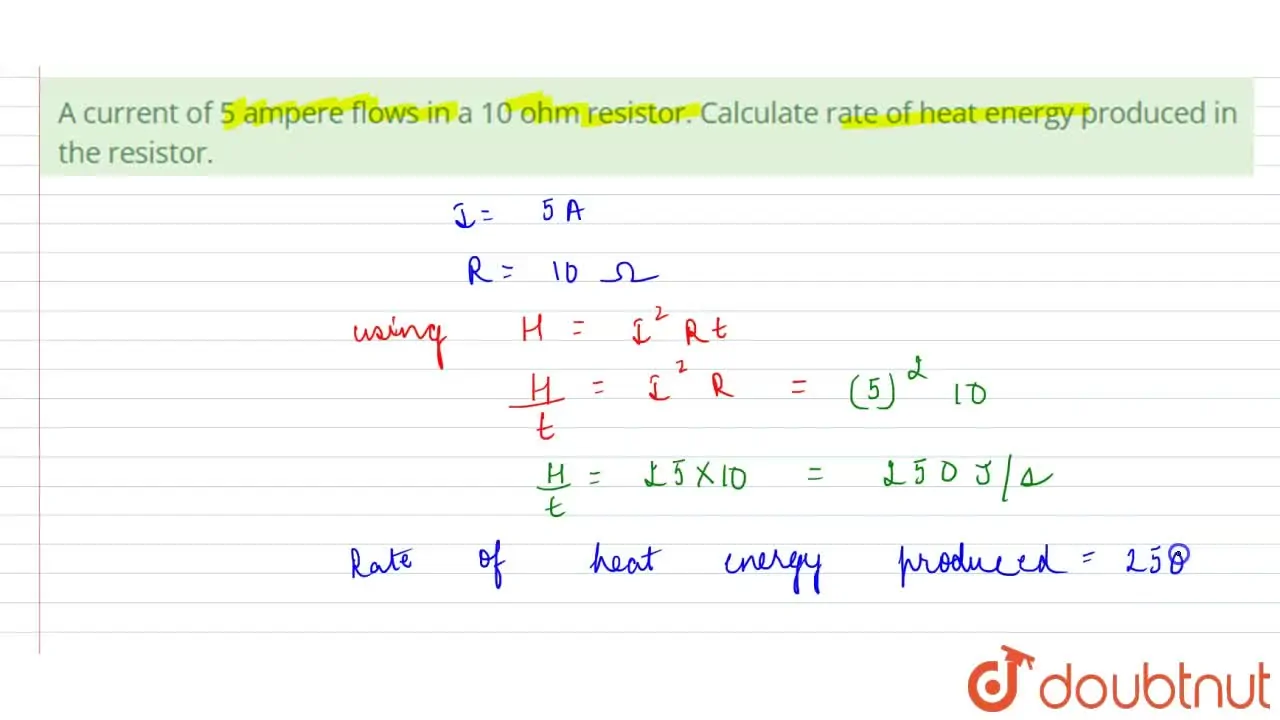 A current of 5 ampere flows in a 10 ohm resistor. Calculate rate of heat energy produced in
the resistor.
I = 5 A
R = 10 Ω
using H = I² R t
H/t = I² R = (5)² 10
H/t = 25 × 10 = 250 J/s
Rate of heat energy produced = 250
doubtnut